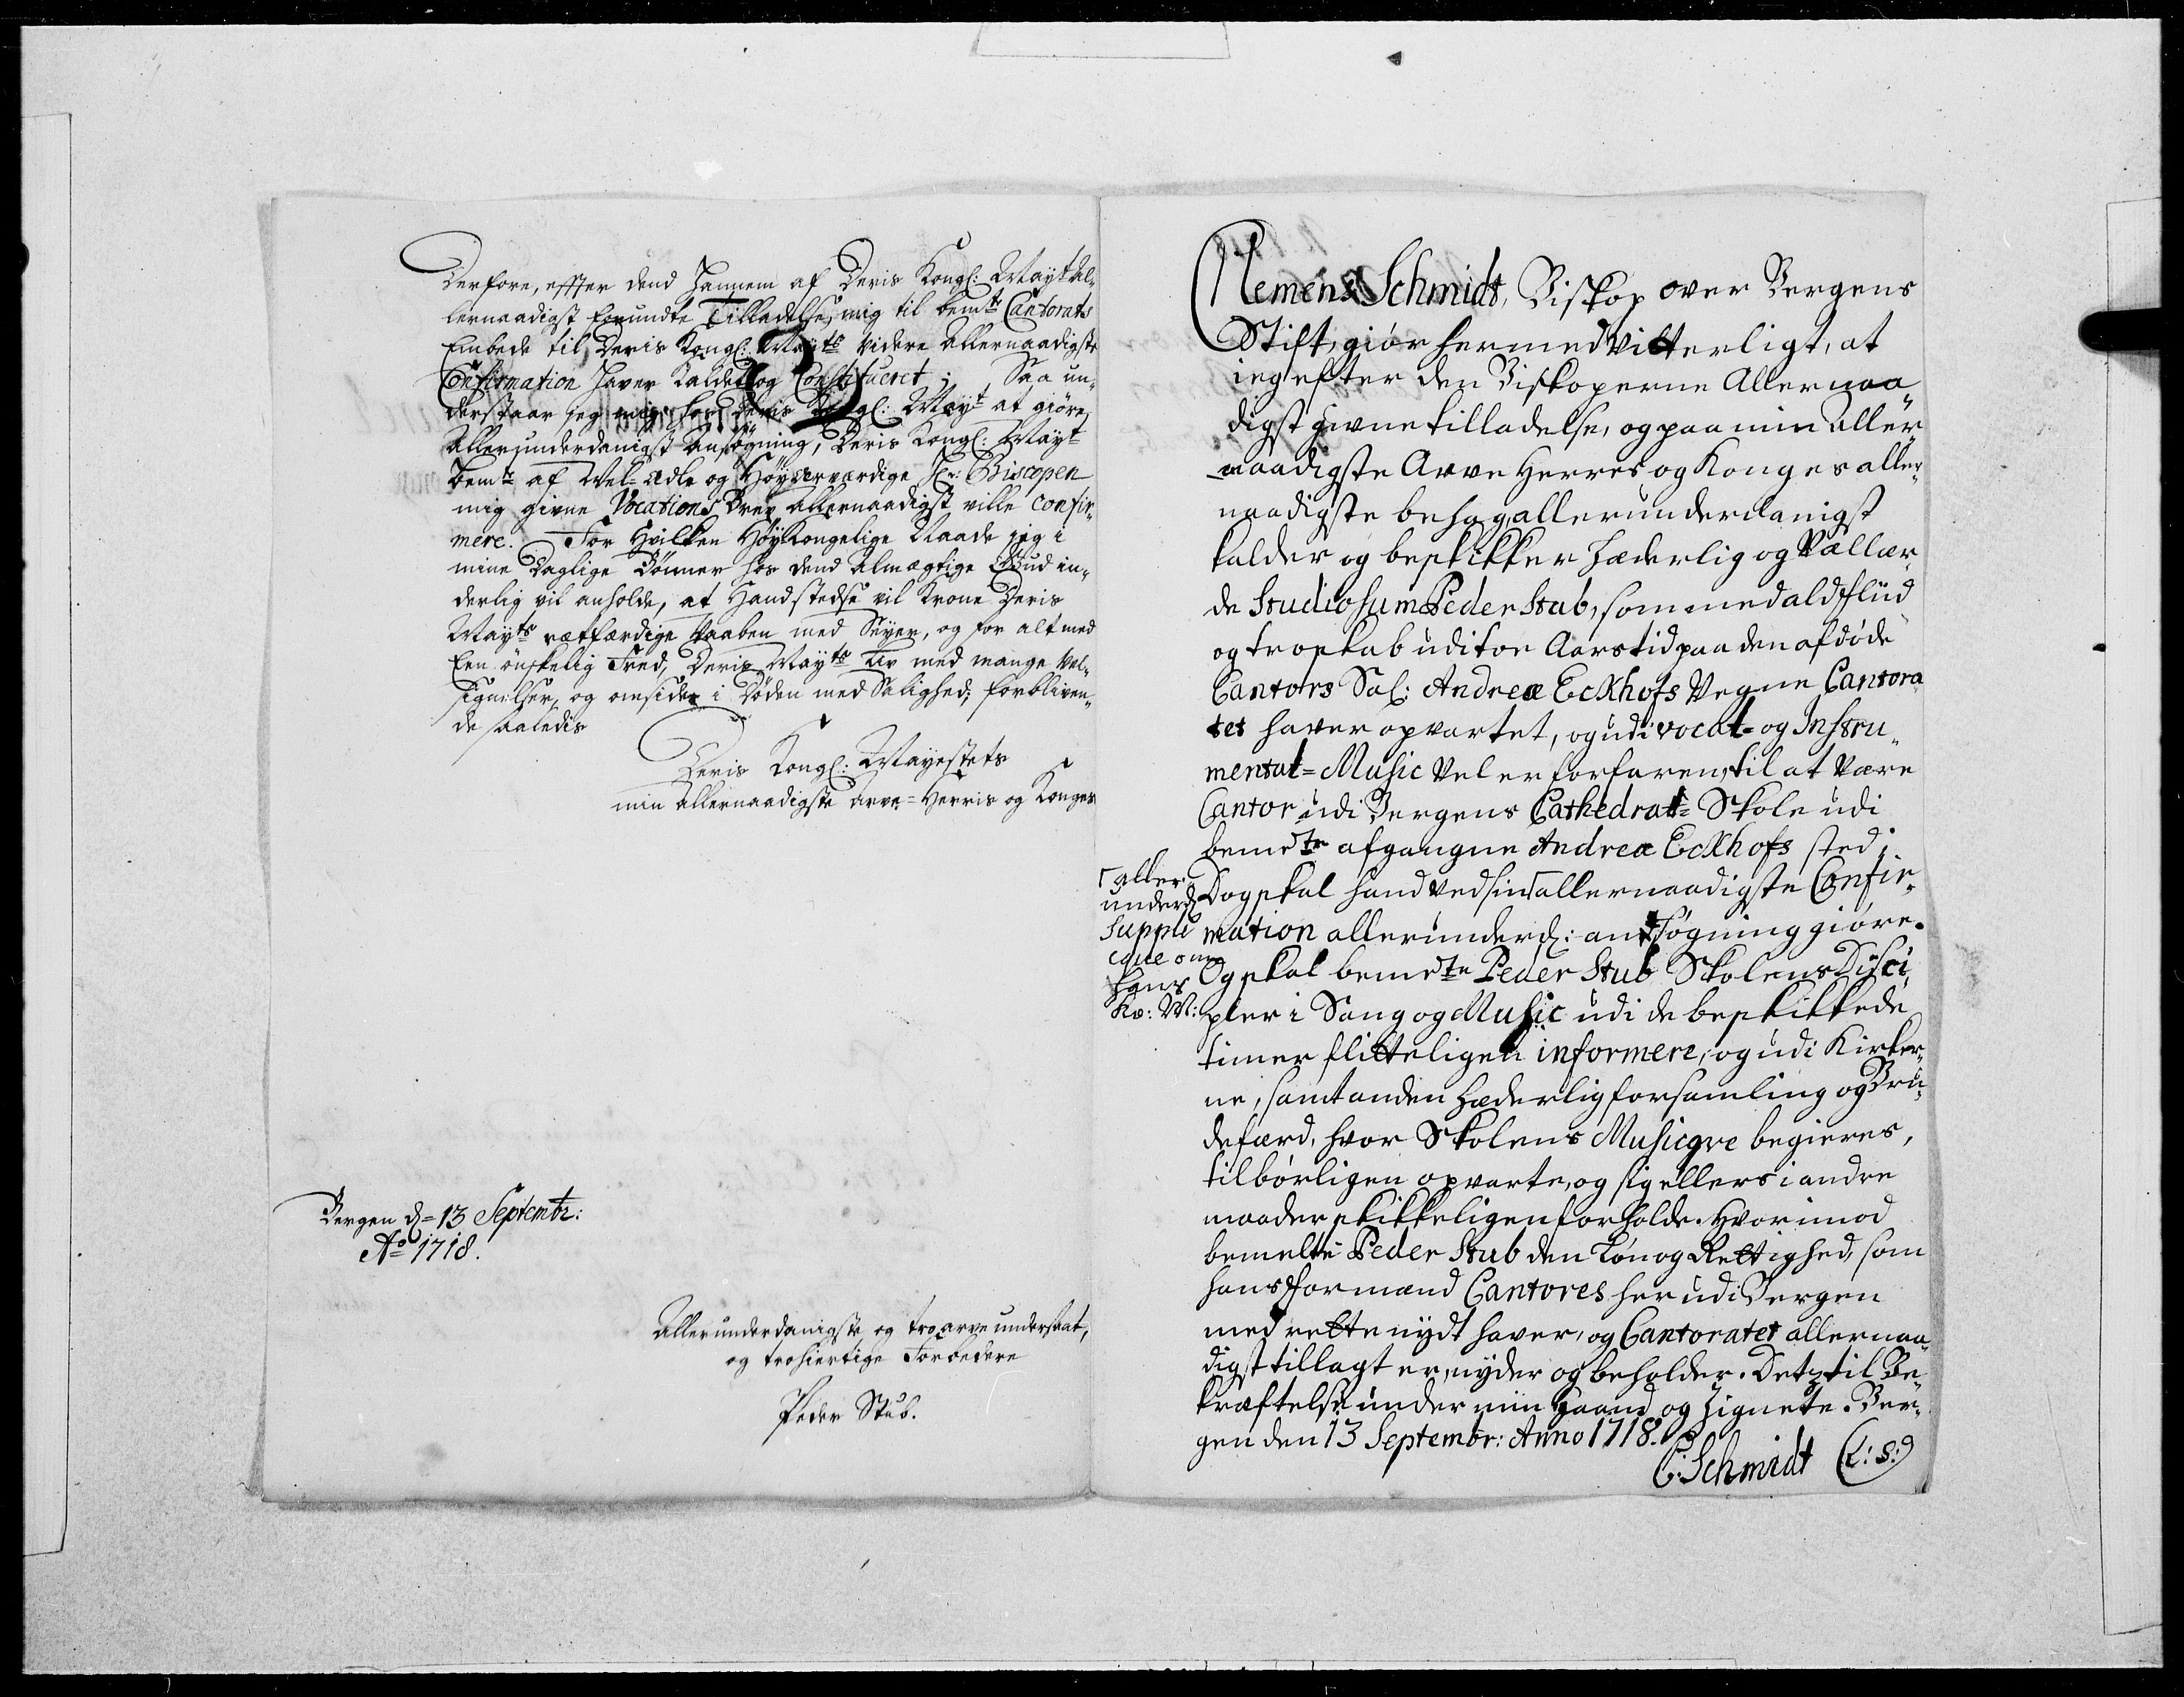 Derfore, effter dend Hannem af Deris Kongl: Mayt al¬
lernaadigst forundte Tilladelse, mig til bemte Cantorats
Embede til Deris Kongl: Mayts videre Allernaadigste
Confirmation haver kaldet og Constitueret; Saa un¬
derstaar jeg mig hos Deris Kongl: Mayt at giøre
Allerunderdanigst Ansøgning, Deris Kongl: Mayt
bemte af Vel-ædle og Høyærværdige Hr: Biscopen
mig givne Vocations Brev allernaadigst ville confir¬
mere. For Hvilken HøyKongelige Naade jeg i
mine Daglige Bønner hos dend Almægtige Gud in¬
derlig vil anholde, at Hand stedse vil Krone Deris
Mayts rætfærdige Vaaben med Seyer, og for alt med
Een ønskelig Fred, Deris Mayts Liv med mange Vel¬
signelser, og omsider i Døden med Salighed; forbliven¬
de saaledis
Deris Kongl: Mayestets
min Allernaadigste Arve-Herris og Konges
Bergen d= 13 Septembr:
Ao 1718.
Allerunderdanigste og tro arve undersaat,
og trohiertige Forbedere
Peder Stub.
Clemens Schmidt, Biskop over Bergens
Stift, giør hermed Vitterligt, at
ieg efter den Biskoperne Allernaa¬
digst givne tilladelse, og paa min Aller¬
naadigste Arve Herres og Konges aller¬
naadigste behag, allerunderdanigst
kalder og beskikker Hæderlig og Vællær¬
de Studiosum Peder Stub, som med ald flid
og troskab udi tov Aars tid paa den afdøde
Cantors Sal: Andreæ Eckhofs Vegne Cantora
tet haver opvartet, og udi vocal- og Instru¬
mental-Music Vel er forfaren, til at være
Cantor udi Bergens Cathedral-Skole udi
bemeldte afgangne Andreæ Eckhofs sted;
Dog skal hand ved sin allernaadigste Confir¬
mation allerunderd: ansøgning giøre.
aller
underd:
suppli
cqve om
hans
Ko: M:
Og skal bemeldte Peder Stub Skolens Disci¬
pler i Sang og Music udi de beskikkede
timer flitteligen informere, og udi Kirker¬
ne, samt anden Hæderlig forsamling og Bru¬
defærd, hvor Skolens Musiqve begieres,
tilbørligen opvarte, og sig ellers i andre
maader skikkeligen forholde. Hvorimod
bemelte Peder Stub den Løn og Rettighed, som
hans Formænd Cantores her udi Bergen
med rette nydt haver, og Cantoratet allernaa¬
digst tillagt er, nyder og beholder. Detz til Be¬
kræftelse under min Haand og Zignete. Ber¬
gen den 13 Septembr: Anno 1718.
C: Schmidt (L: S:)